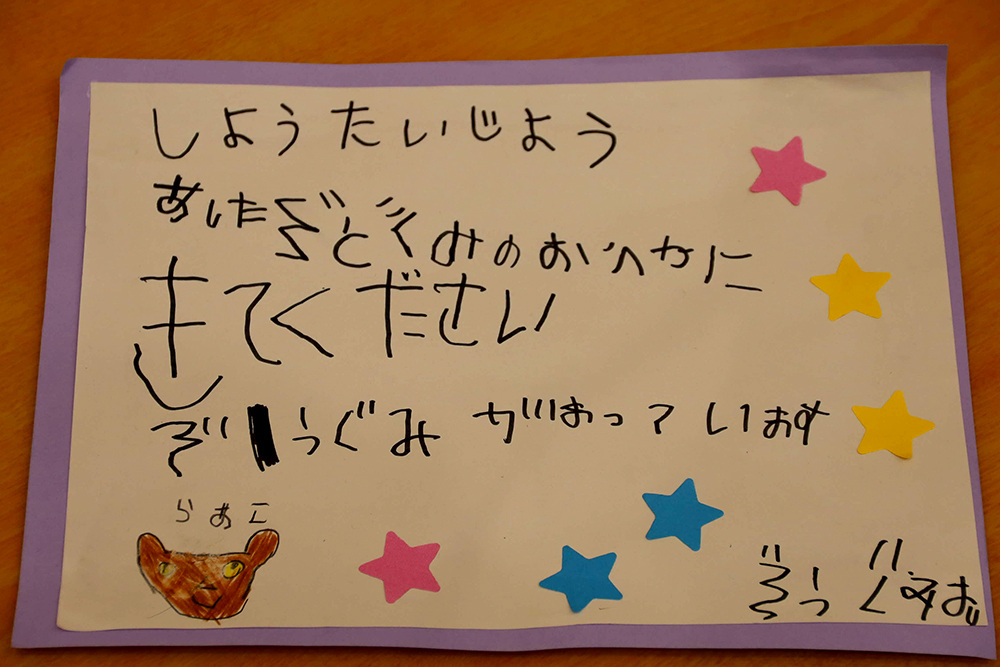 しようたいじよう
あしたぞうぐみのおへやに
きてください
ぞうぐみがまっています
らあこ
ぞうぐみ